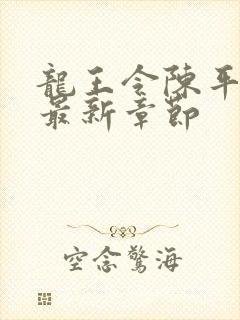 龍王令陳平
最新章節
空念驚海